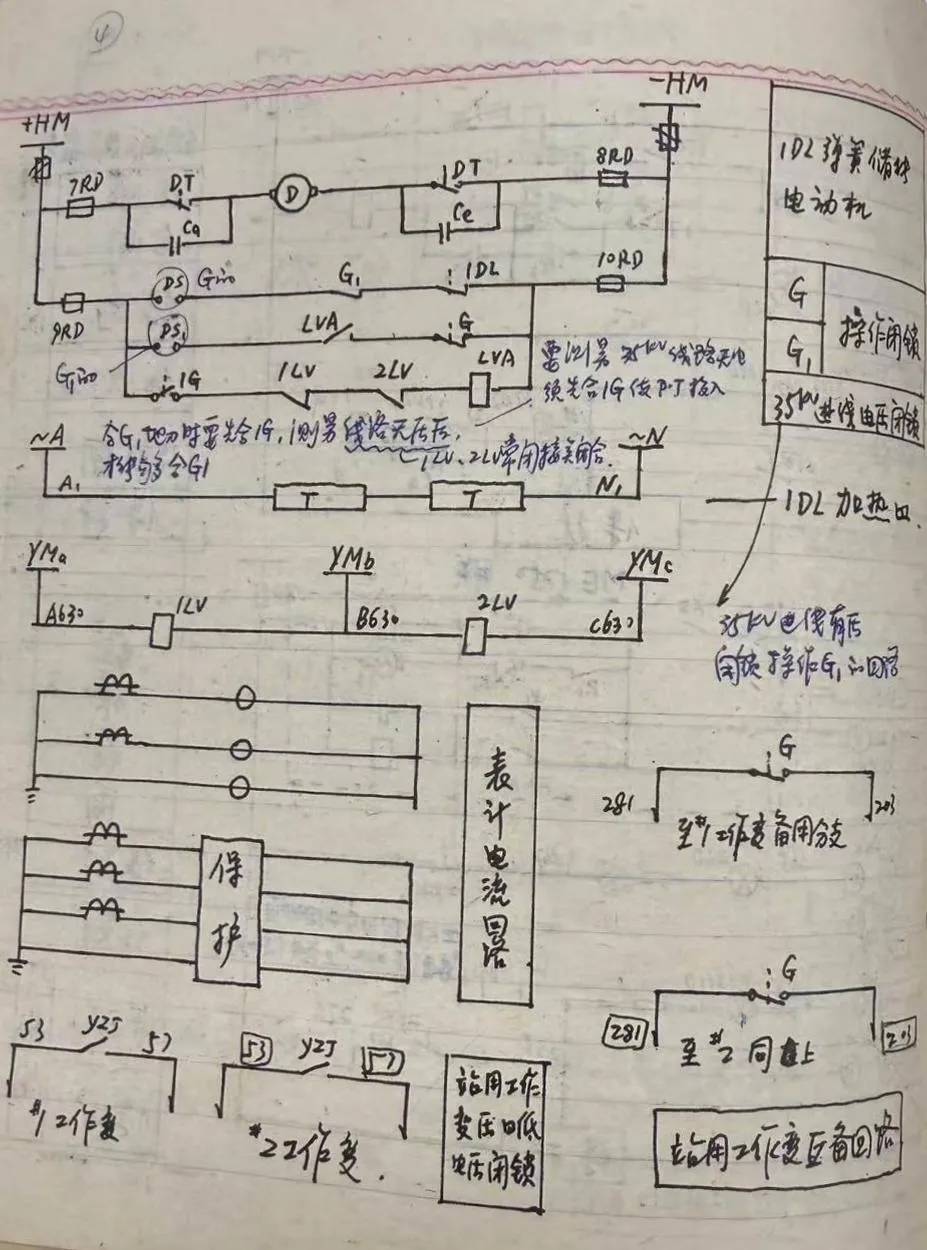 4
+HM
-HM
7RD
DT
Ca
D
DT
Ce
8RD
9RD
DS
G
G₁
1DL
10RD
DS₁
LVA
G
G₁
1G
1LV
2LV
LVA
要测另35kV线路无电
须先合1G使PT接入
合G₁地刀时要先合1G,测另线路无压后,
才能够合G1
1LV、2LV常闭接点闭合
1DL弹簧储能
电动机
G
G₁
操作闭锁
35kV进线电压闭锁
~A
~N
A₁
T
T
N₁
1DL加热回.
YMa
YMb
YMc
A630
1LV
B630
2LV
C630
35KV进线有压
闭锁操作G₁的回路
表计电流回路
保护
G
281
203
至#1工作变备用分支
G
281
203
至#2同上
53
YZJ
57
#1工作变
53
YZJ
57
#2工作变.
站用工作
变压口低
电压闭锁
站用工作变互备回路